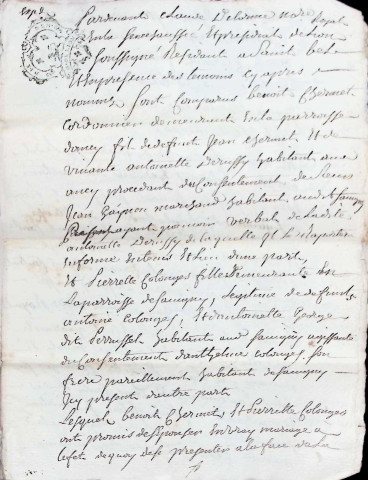 Pardevant Claude Delorme nore Royal
En la senechaussée Et presidial de Lyon
soussigné Residant a Saint bel
Et En presence des temoins cy apres
nommés sont comparus benoit Chermet
Cordonnier demeurant En la parroisse
dancy fil de defunt Jean Chermet Et de
vivante antoinette Derussy habitant aud
ancy procedant du Consentement de Sieur
Jean Gagnon marchand habitant aud Savigny
ayant pouvoir verbal de ladite
antoinette Derussy de laquelle Il
Informé dutout Et lieu dune part,
Et Pierrette Colonges fille demeurante En
Laparroisse de Savigny, Legitime de defunt
antoine Colonges, Et dantoinette George
dit Perussel habitant aud Savigny agissante
du Consentement danthelme Colonges, son
frere pareillement habitant de Savigny
Icy present dautre part
Lesquel benoit Chermet Et Pierrette Colonges
ont promis de sepouser En vray mariage a
Leffet de quoy de se presenter a la face de La